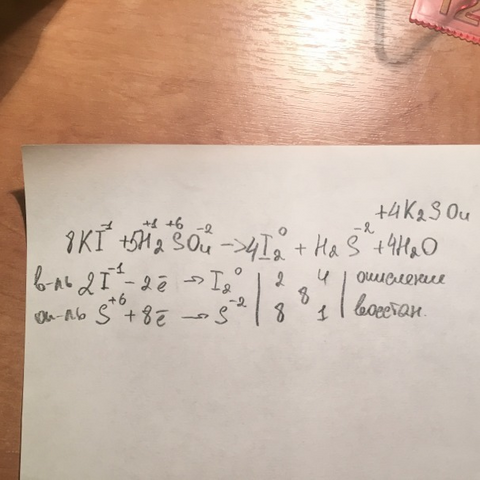 +4K₂SO₄
8KI⁻¹ + 5H₂⁺¹S⁺⁶O₄⁻² -> 4I₂⁰ + H₂S⁻² + 4H₂O
в-ль 2I⁻¹ - 2ē -> I₂⁰ | 2 8 4 | окисление
ок-ль S⁺⁶ + 8ē -> S⁻² | 8 1 | восстан.
12